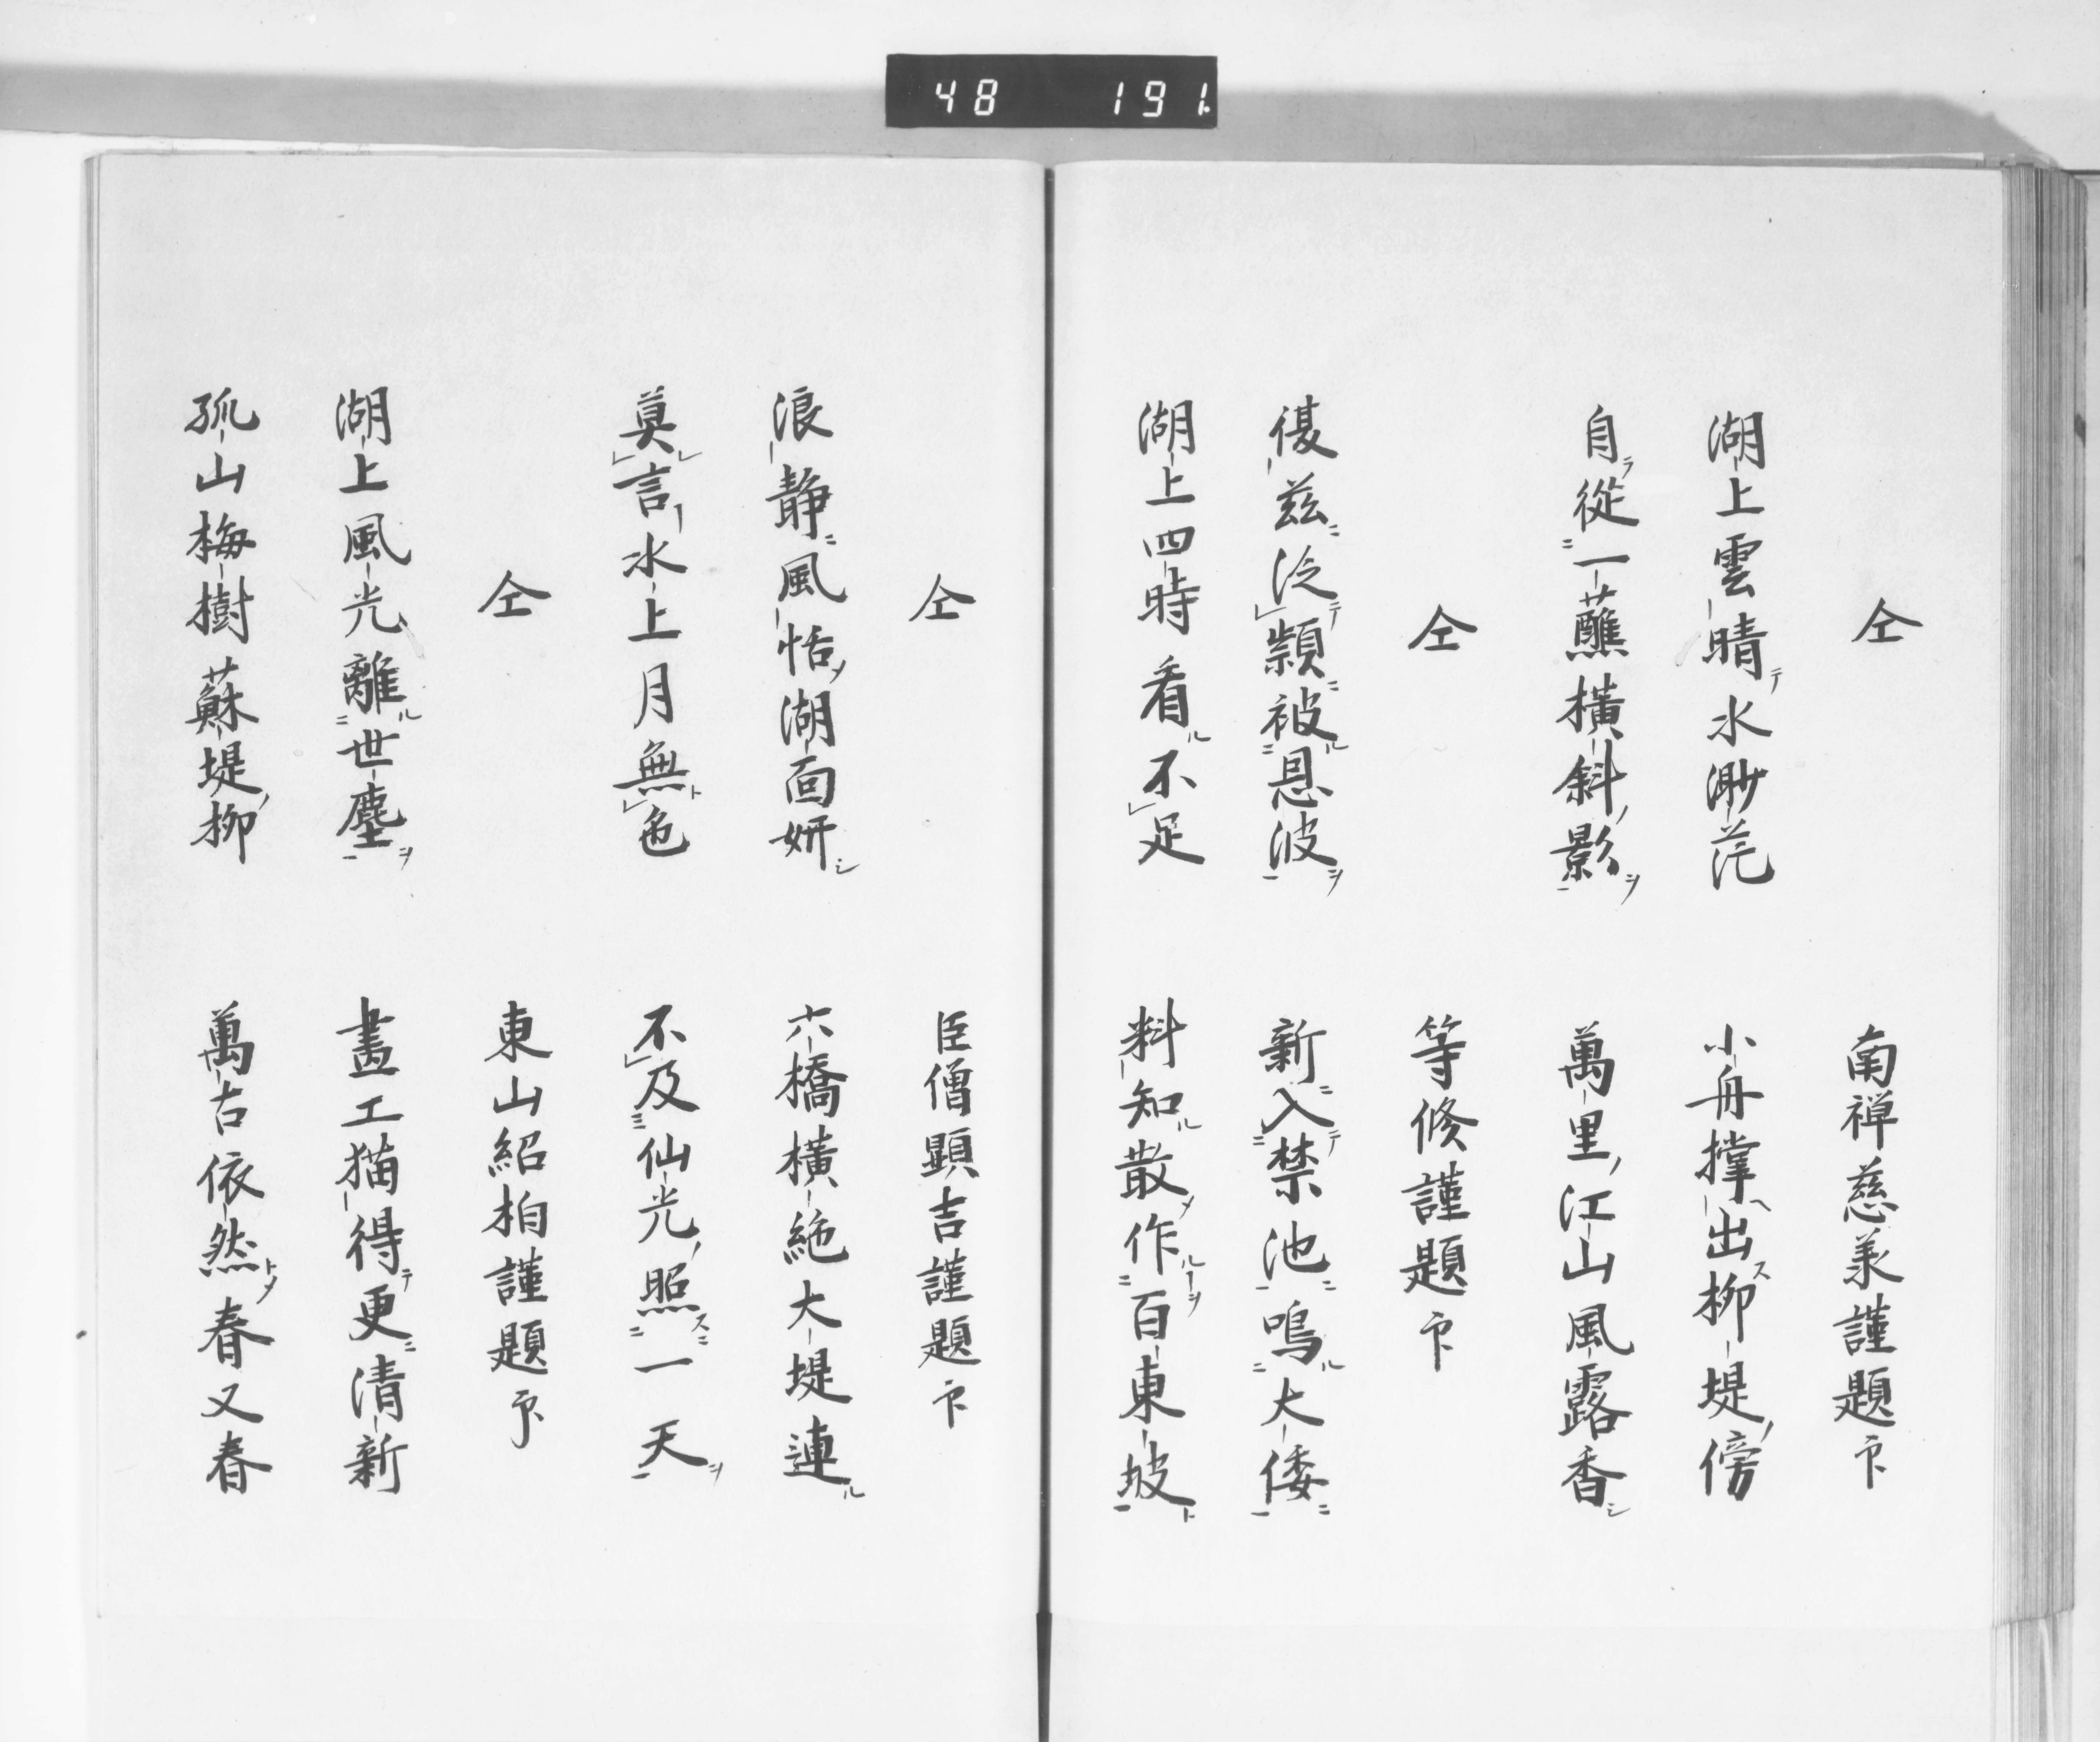 48 191
仝 南禅慈采謹題印
湖上雲晴水渺茫 小舟撑出柳堤傍
自從一蘸橫斜影 萬里江山風露香
仝 等修謹題印
優兹泛潁被恩波 新入禁池鳴大倭
湖上四時看不足 料知散作百東坡
仝 臣僧顕吉謹題印
浪静風恬湖面妍 六橋橫絶大堤連
莫言水上月無色 不及仙光照一天
仝 東山紹柏謹題印
湖上風光離世塵 畫工猫得更清新
孤山梅樹蘇堤柳 萬古依然春又春